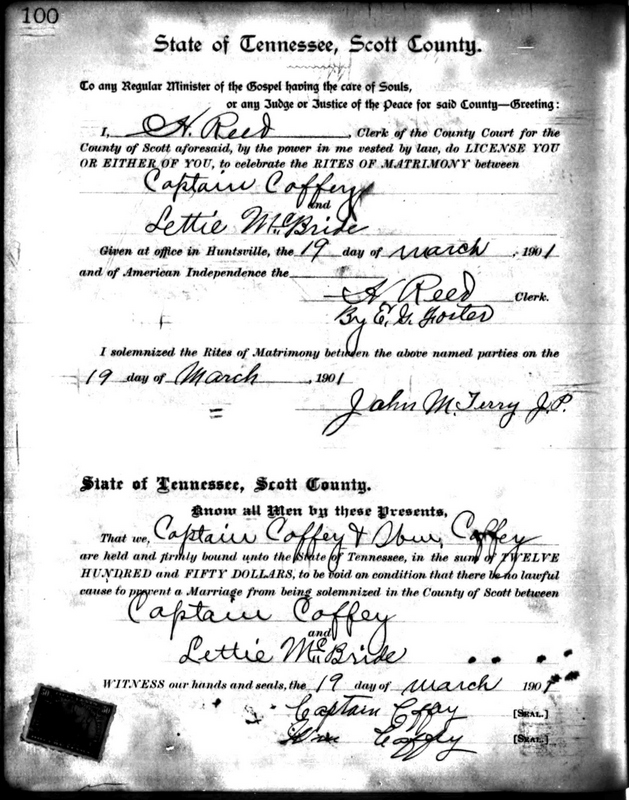 100
State of Tennessee, Scott County.
To any Regular Minister of the Gospel having the care of Souls,
or any Judge or Justice of the Peace for said County—Greeting:
I, H. Reed, Clerk of the County Court for the
County of Scott aforesaid, by the power in me vested by law, do LICENSE YOU
OR EITHER OF YOU, to celebrate the RITES OF MATRIMONY between
Captain Coffey
and
Lettie McBride
Given at office in Huntsville, the 19 day of march, 1901
and of American Independence the
H. Reed Clerk.
By E. G. Foster
I solemnized the Rites of Matrimony between the above named parties on the
19 day of March, 1901
John M. Terry J.P.
State of Tennessee, Scott County.
Know all Men by these Presents,
That we, Captain Coffey & Wm, Coffey
are held and firmly bound unto the State of Tennessee, in the sum of TWELVE
HUNDRED and FIFTY DOLLARS, to be void on condition that there be no lawful
cause to prevent a Marriage from being solemnized in the County of Scott between
Captain Coffey
and
Lettie McBride
WITNESS our hands and seals, the 19 day of march 1901
Captain Coffey [SEAL.]
Wm Coffey [SEAL.]